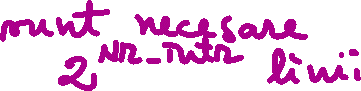 sunt necesare
2^NR_INTR linii